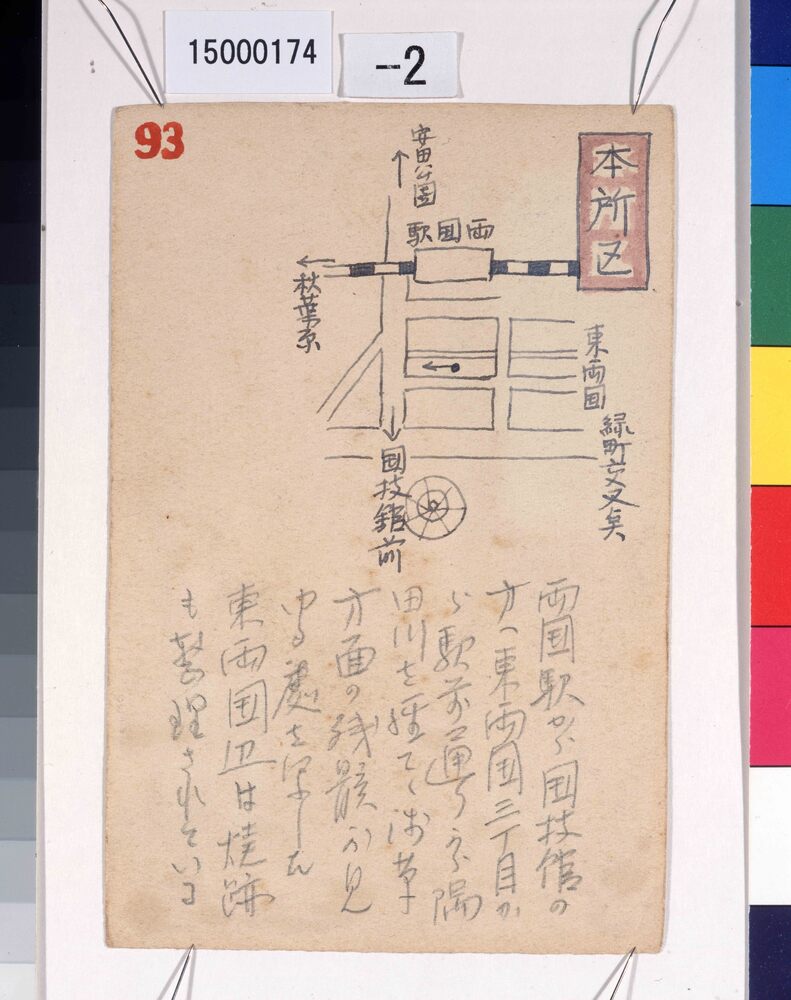 15000174
-2
93
本所区
安田公園
両国駅
秋葉原
東両国
緑町交叉点
国技館前
両国駅から国技館の
方へ東両国三丁目か
ら駅前通りから隅
田川を種てゝ浅草
方面の残骸が見
ゆる處を写した
東両国辺は焼跡
も整理されている